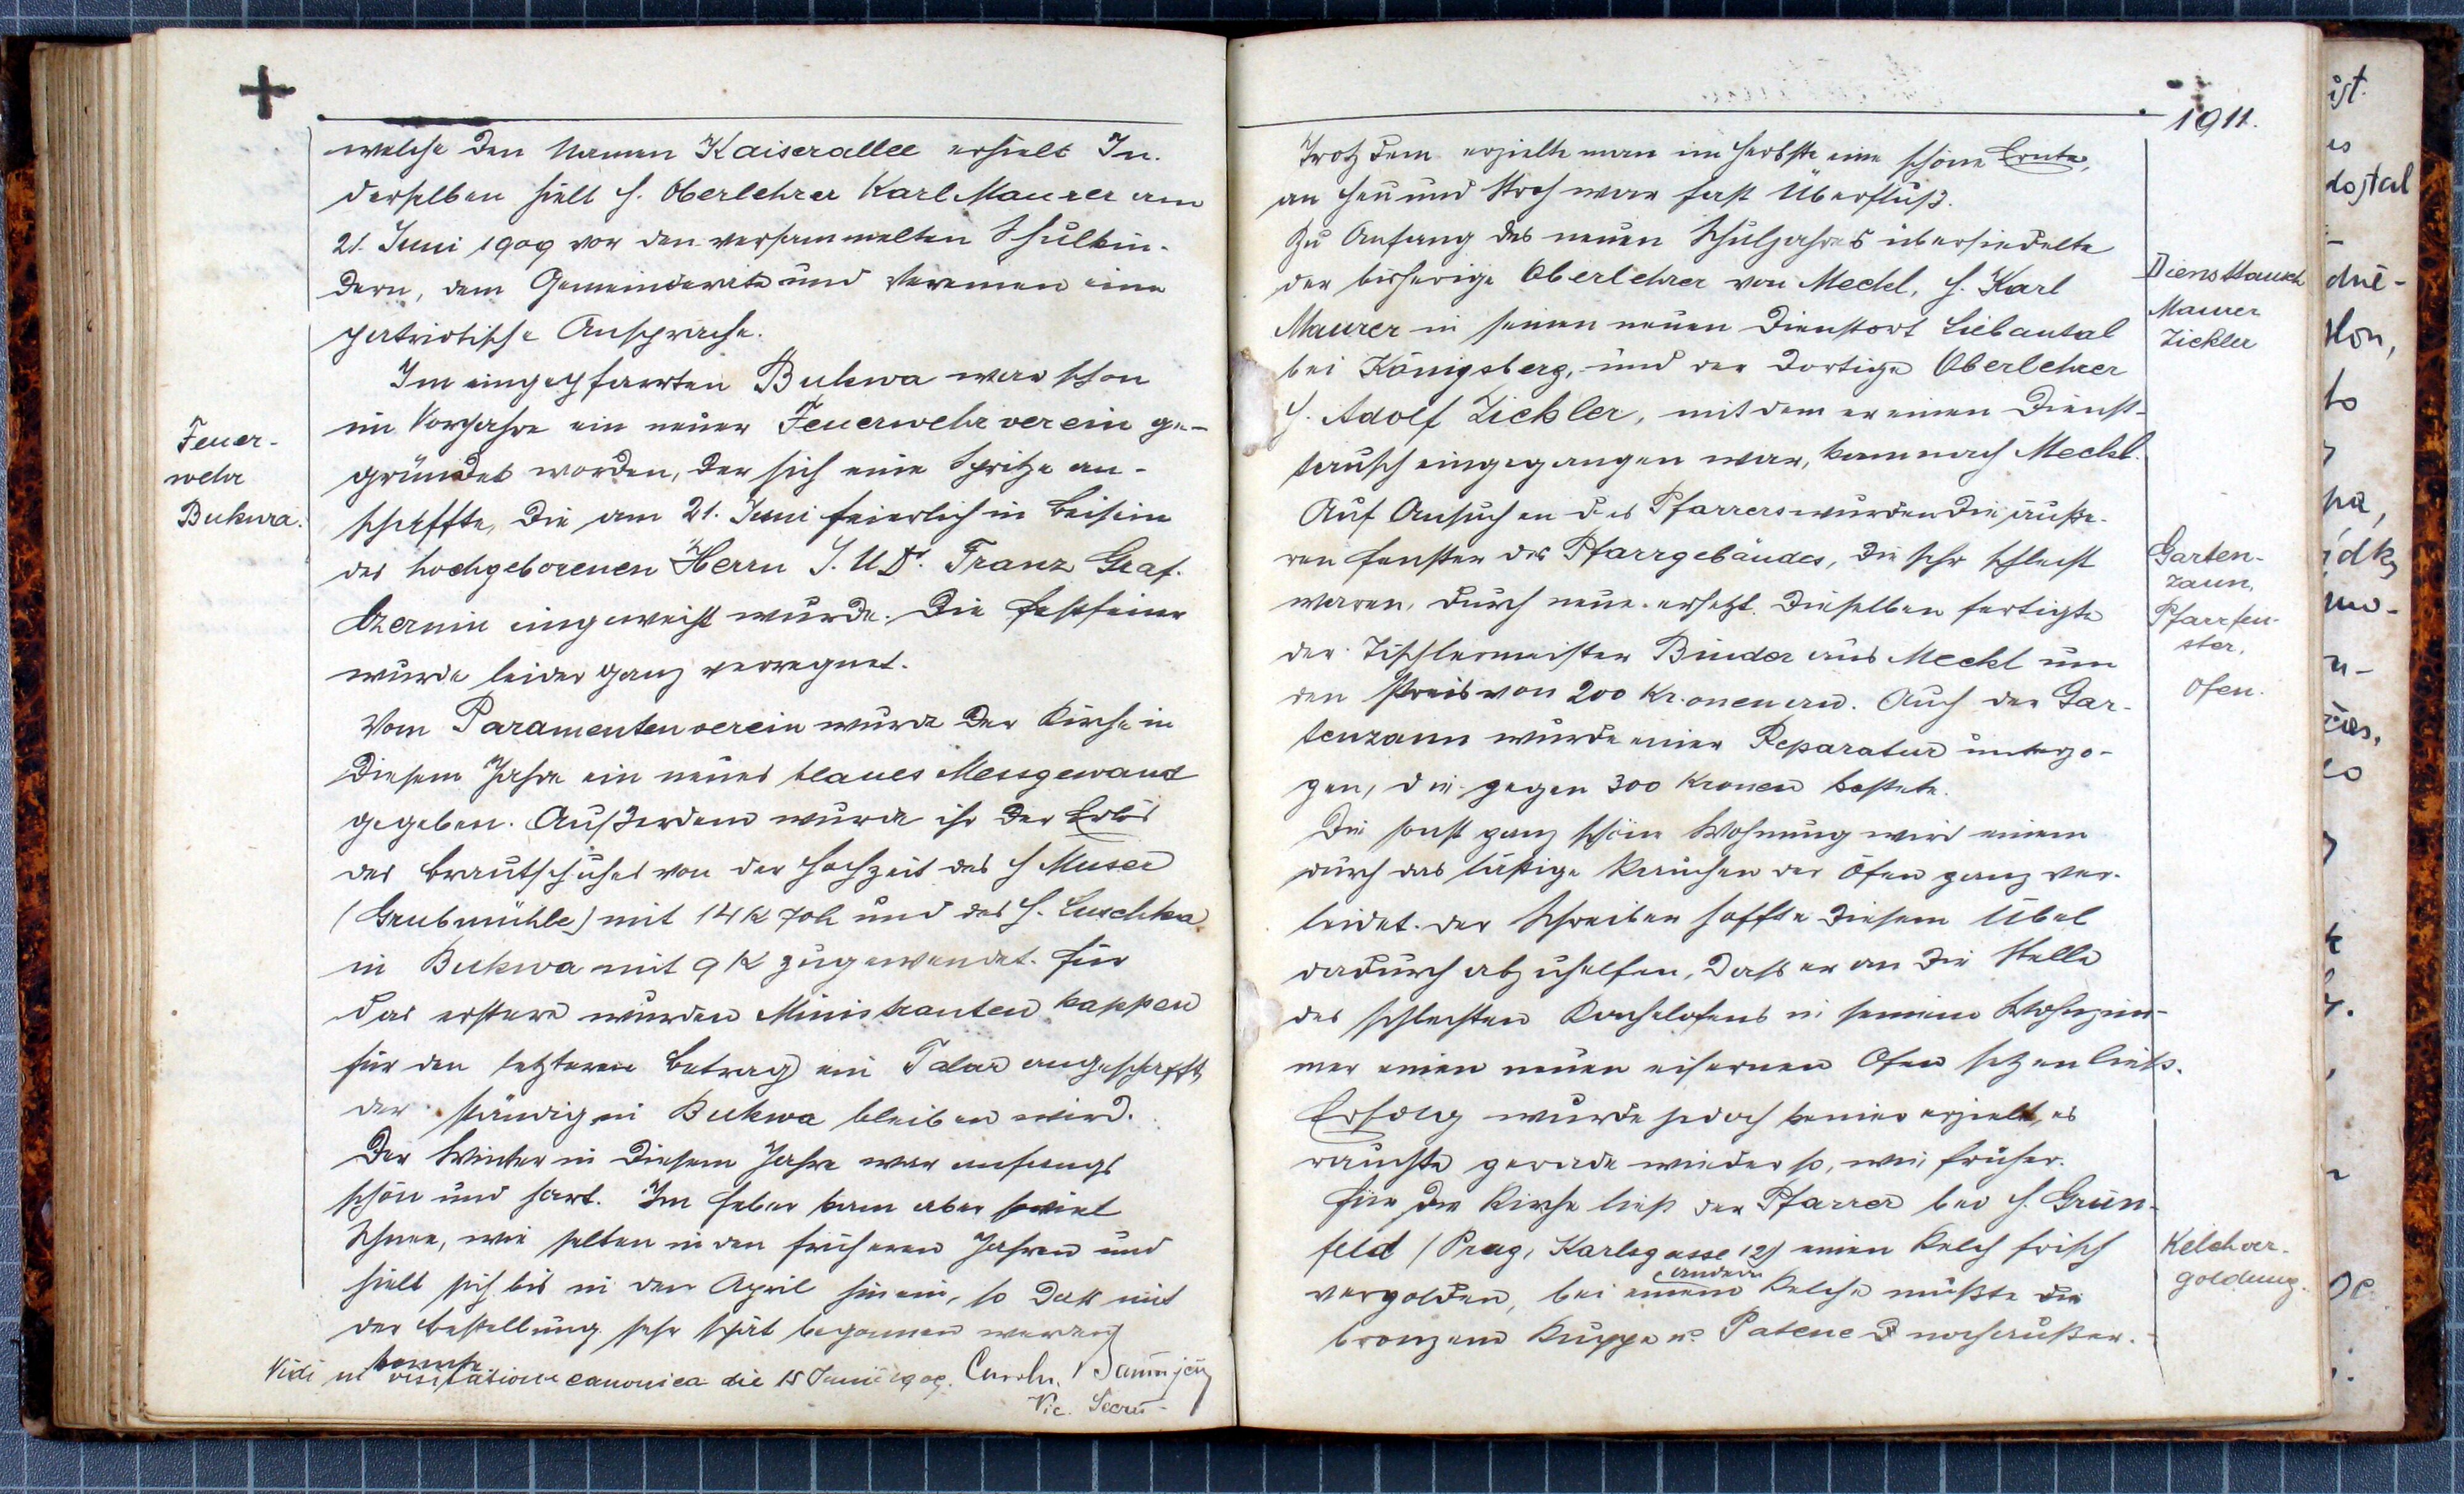 welche den Namen Kaiserallee erhielt In
derselben hielt H. Oberlehrer Karl Maurer am
21. Juni 1909 vor den versammelten Schulkin-
dern, dem Gemeinderate und Vereinen eine
patriotische Ansprache.
Im eingepfarrten Bukwa war schon
Feuer-
wehr
Bukwa.
im Vorjahre ein neuer Feuerwehrverein ge-
gründet worden, der sich eine Spritze an-
schaffte, die am 21. Juni feierlich in Beisein
des hochgeborenen Herrn J. U Dr. Franz Graf
Czernin eingeweiht wurde. Die Festfeier
wurde leider ganz verregnet.
Vom Paramentenverein wurde der Kirche in
diesem Jahre ein neues blaues Messgewand
gegeben. Außerdem wurde ihr der Erlös
des Brautschuhes von der Hochzeit des H Muser
(Grubmühle) mit 14 K 70 h und des H. Luschka
in Bukwa mit 9 K zugewendet. Für
das erstere wurden Ministranten kappen
für den letzteren Betrag ein Talar angeschafft,
der ständig in Bukwa bleiben wird.
Der Winter in diesem Jahre war anfangs
schön und hart. Im Feber kam aber soviel
Schnee, wie selten in den früheren Jahren und
hielt sich bis in den April hinein, so daß mit
der Bestellung sehr spät begonnen werden
konnte.
Vidi in visitatione canonica die 15 Junii 1909.
Vic. Secre
1911.
Trotzdem erzielte man im Herbste eine schöne Ernte,
an Heu und Stroh war fast Überfluß.
Zu Anfang des neuen Schuljahres übersiedelte
der bisherige Oberlehrer von Meckl, H. Karl
Maurer in seinen neuen Dienstort Liebautal
bei Königsberg, und der dortige Oberlehrer
H. Adolf Zickler, mit dem er einen Dienst-
tausch eingegangen war, kam nach Meckl.
Diensttausch
Maurer
Zickler
Auf Ansuchen des Pfarrers wurden die äuße-
ren Fenster des Pfarrgebäudes, die sehr schlecht
waren, durch neue ersetzt. Dieselben fertigte
der Tischlermeister Binder aus Meckl um
den Preis von 200 Kr.onen an. Auch der Gar-
tenzaun wurde einer Reparatur unterzo-
gen, die gegen 300 Kronen kostete.
Garten-
zaun,
Pfarrfen-
ster,
Ofen.
Die sonst ganz schöne Wohnung wird einem
durch das lästige Rauchen der Öfen ganz ver-
leidet. Der Schreiber hoffte diesem Übel
dadurch abzuhelfen, daß er an die Stelle
des schlechten Kachelofens in seinem Wohnzim-
mer einen neuen eisernen Ofen setzen ließ.
Erfolg wurde jedoch keiner erzielt, es
rauchte gerade wieder so, wie früher.
Für die Kirche ließ der Pfarrer bei H. Grün-
feld (Prag, Karlsgasse 12) einen Kelch frisch
vergolden, bei einem andern Kelche mußte die
bronzene Kuppe u. Patene noch außer-
Kelchver-
goldung.
ist
es
dostal